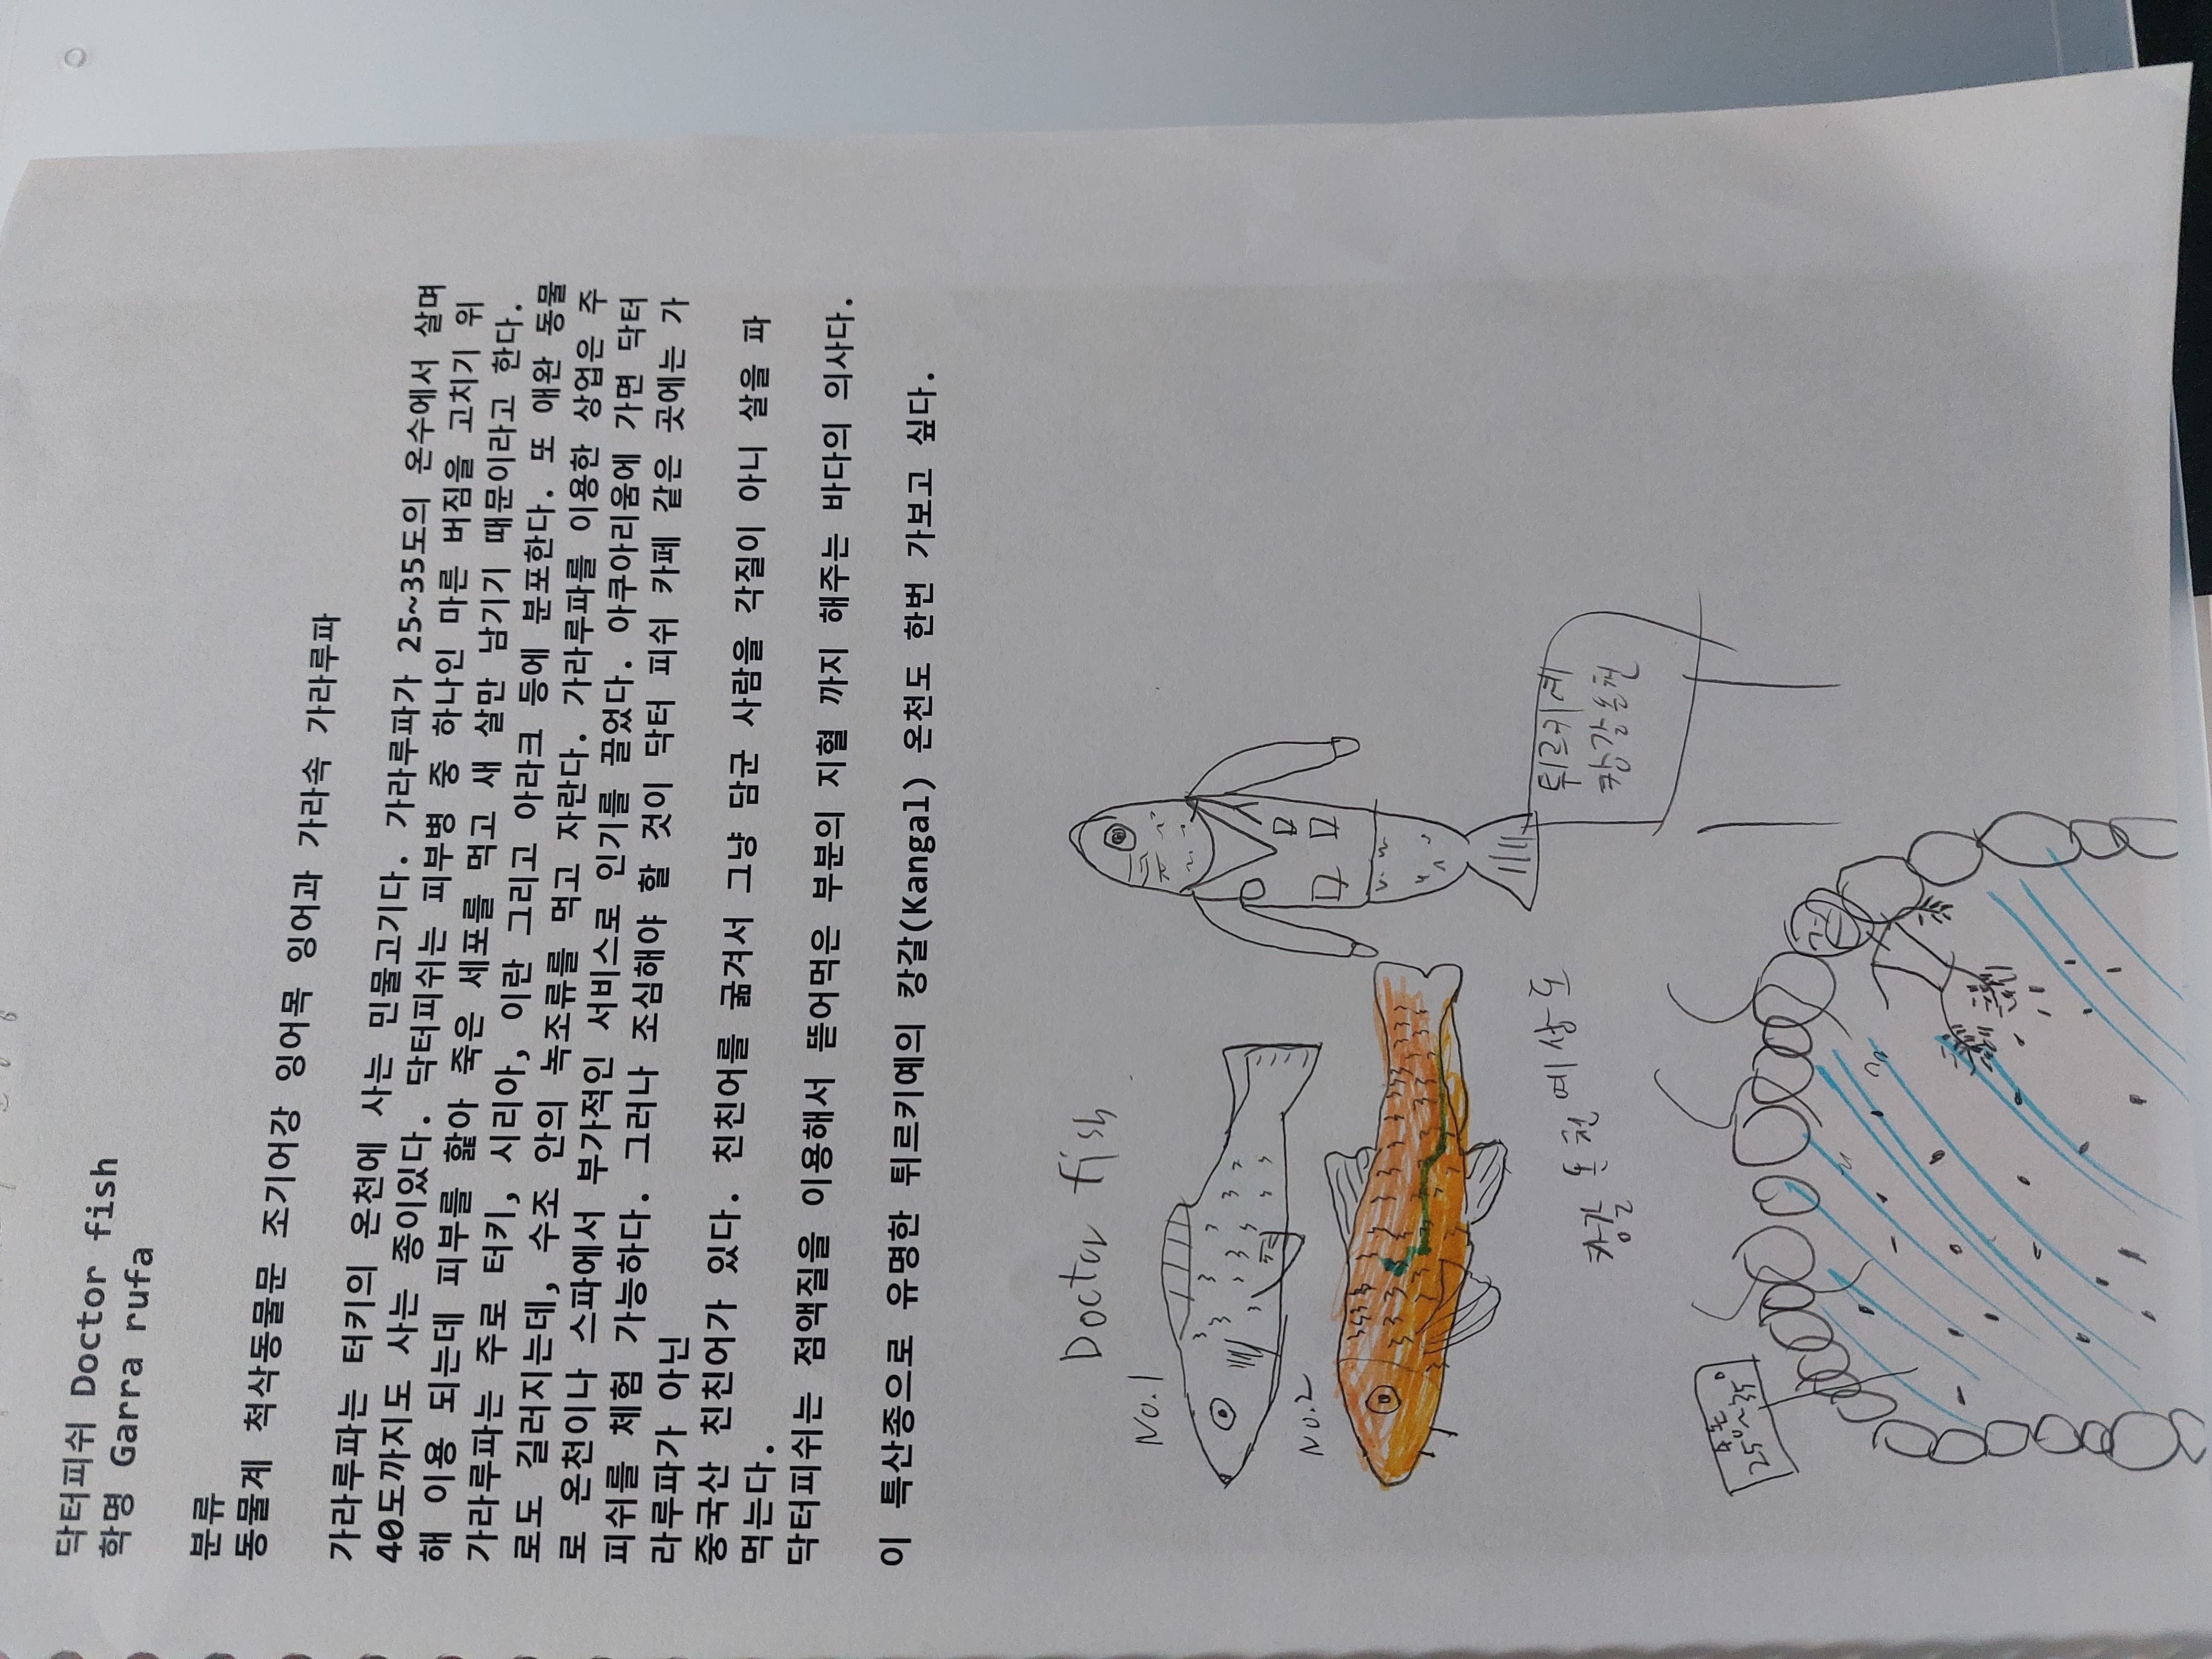 닥터피쉬 Doctor fish
학명 Garra rufa
분류
동물계 척삭동물문 조기어강 잉어목 잉어과 가라속 가라루파
가라루파는 터키의 온천에 사는 민물고기다. 가라루파가 25~35도의 온수에서 살며
40도까지도 사는 종이있다. 닥터피쉬는 피부병 중 하나인 마른 버짐을 고치기 위
해 이용 되는데 피부를 핥아 죽은 세포를 먹고 새 살만 남기기 때문이라고 한다.
가라루파는 주로 터키, 시리아, 이란 그리고 아라크 등에 분포한다. 또 애완 동물
로도 길러지는데, 수조 안의 녹조류를 먹고 자란다. 가라루파를 이용한 상업은 주
로 온천이나 스파에서 부가적인 서비스로 인기를 끌었다. 아쿠아리움에 가면 닥터
피쉬를 체험 가능하다. 그러나 조심해야 할 것이 닥터 피쉬 카페 같은 곳에는 가
라루파가 아닌
중국산 친친어가 있다. 친친어를 굶겨서 그냥 담군 사람을 각질이 아니 살을 파
먹는다.
닥터피쉬는 점액질을 이용해서 뜯어먹은 부분의 지혈 까지 해주는 바다의 의사다.
이 특산종으로 유명한 튀르키예의 캉갈(Kangal) 온천도 한번 가보고 싶다.
Doctor fish
No.1
No.2
튀르키예
캉갈온천
캉갈 온천 예상도
25°~35°